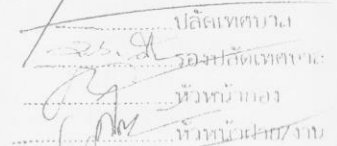 ปลัดเทศบาล
รองปลัดเทศบาล
หัวหน้ากอง
หัวหน้าฝ่าย/งาน